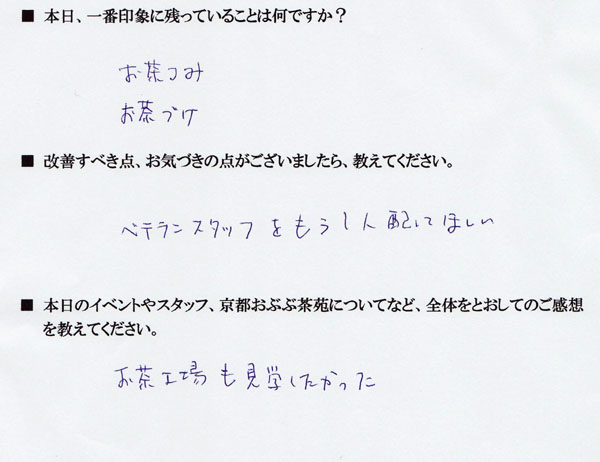 ■ 本日、一番印象に残っていることは何ですか？
お茶つみ
お茶づけ
■ 改善すべき点、お気づきの点がございましたら、教えてください。
ベテランスタッフをもう1人配してほしい
■ 本日のイベントやスタッフ、京都おぶぶ茶苑についてなど、全体をとおしてのご感想
を教えてください。
お茶工場も見学したかった